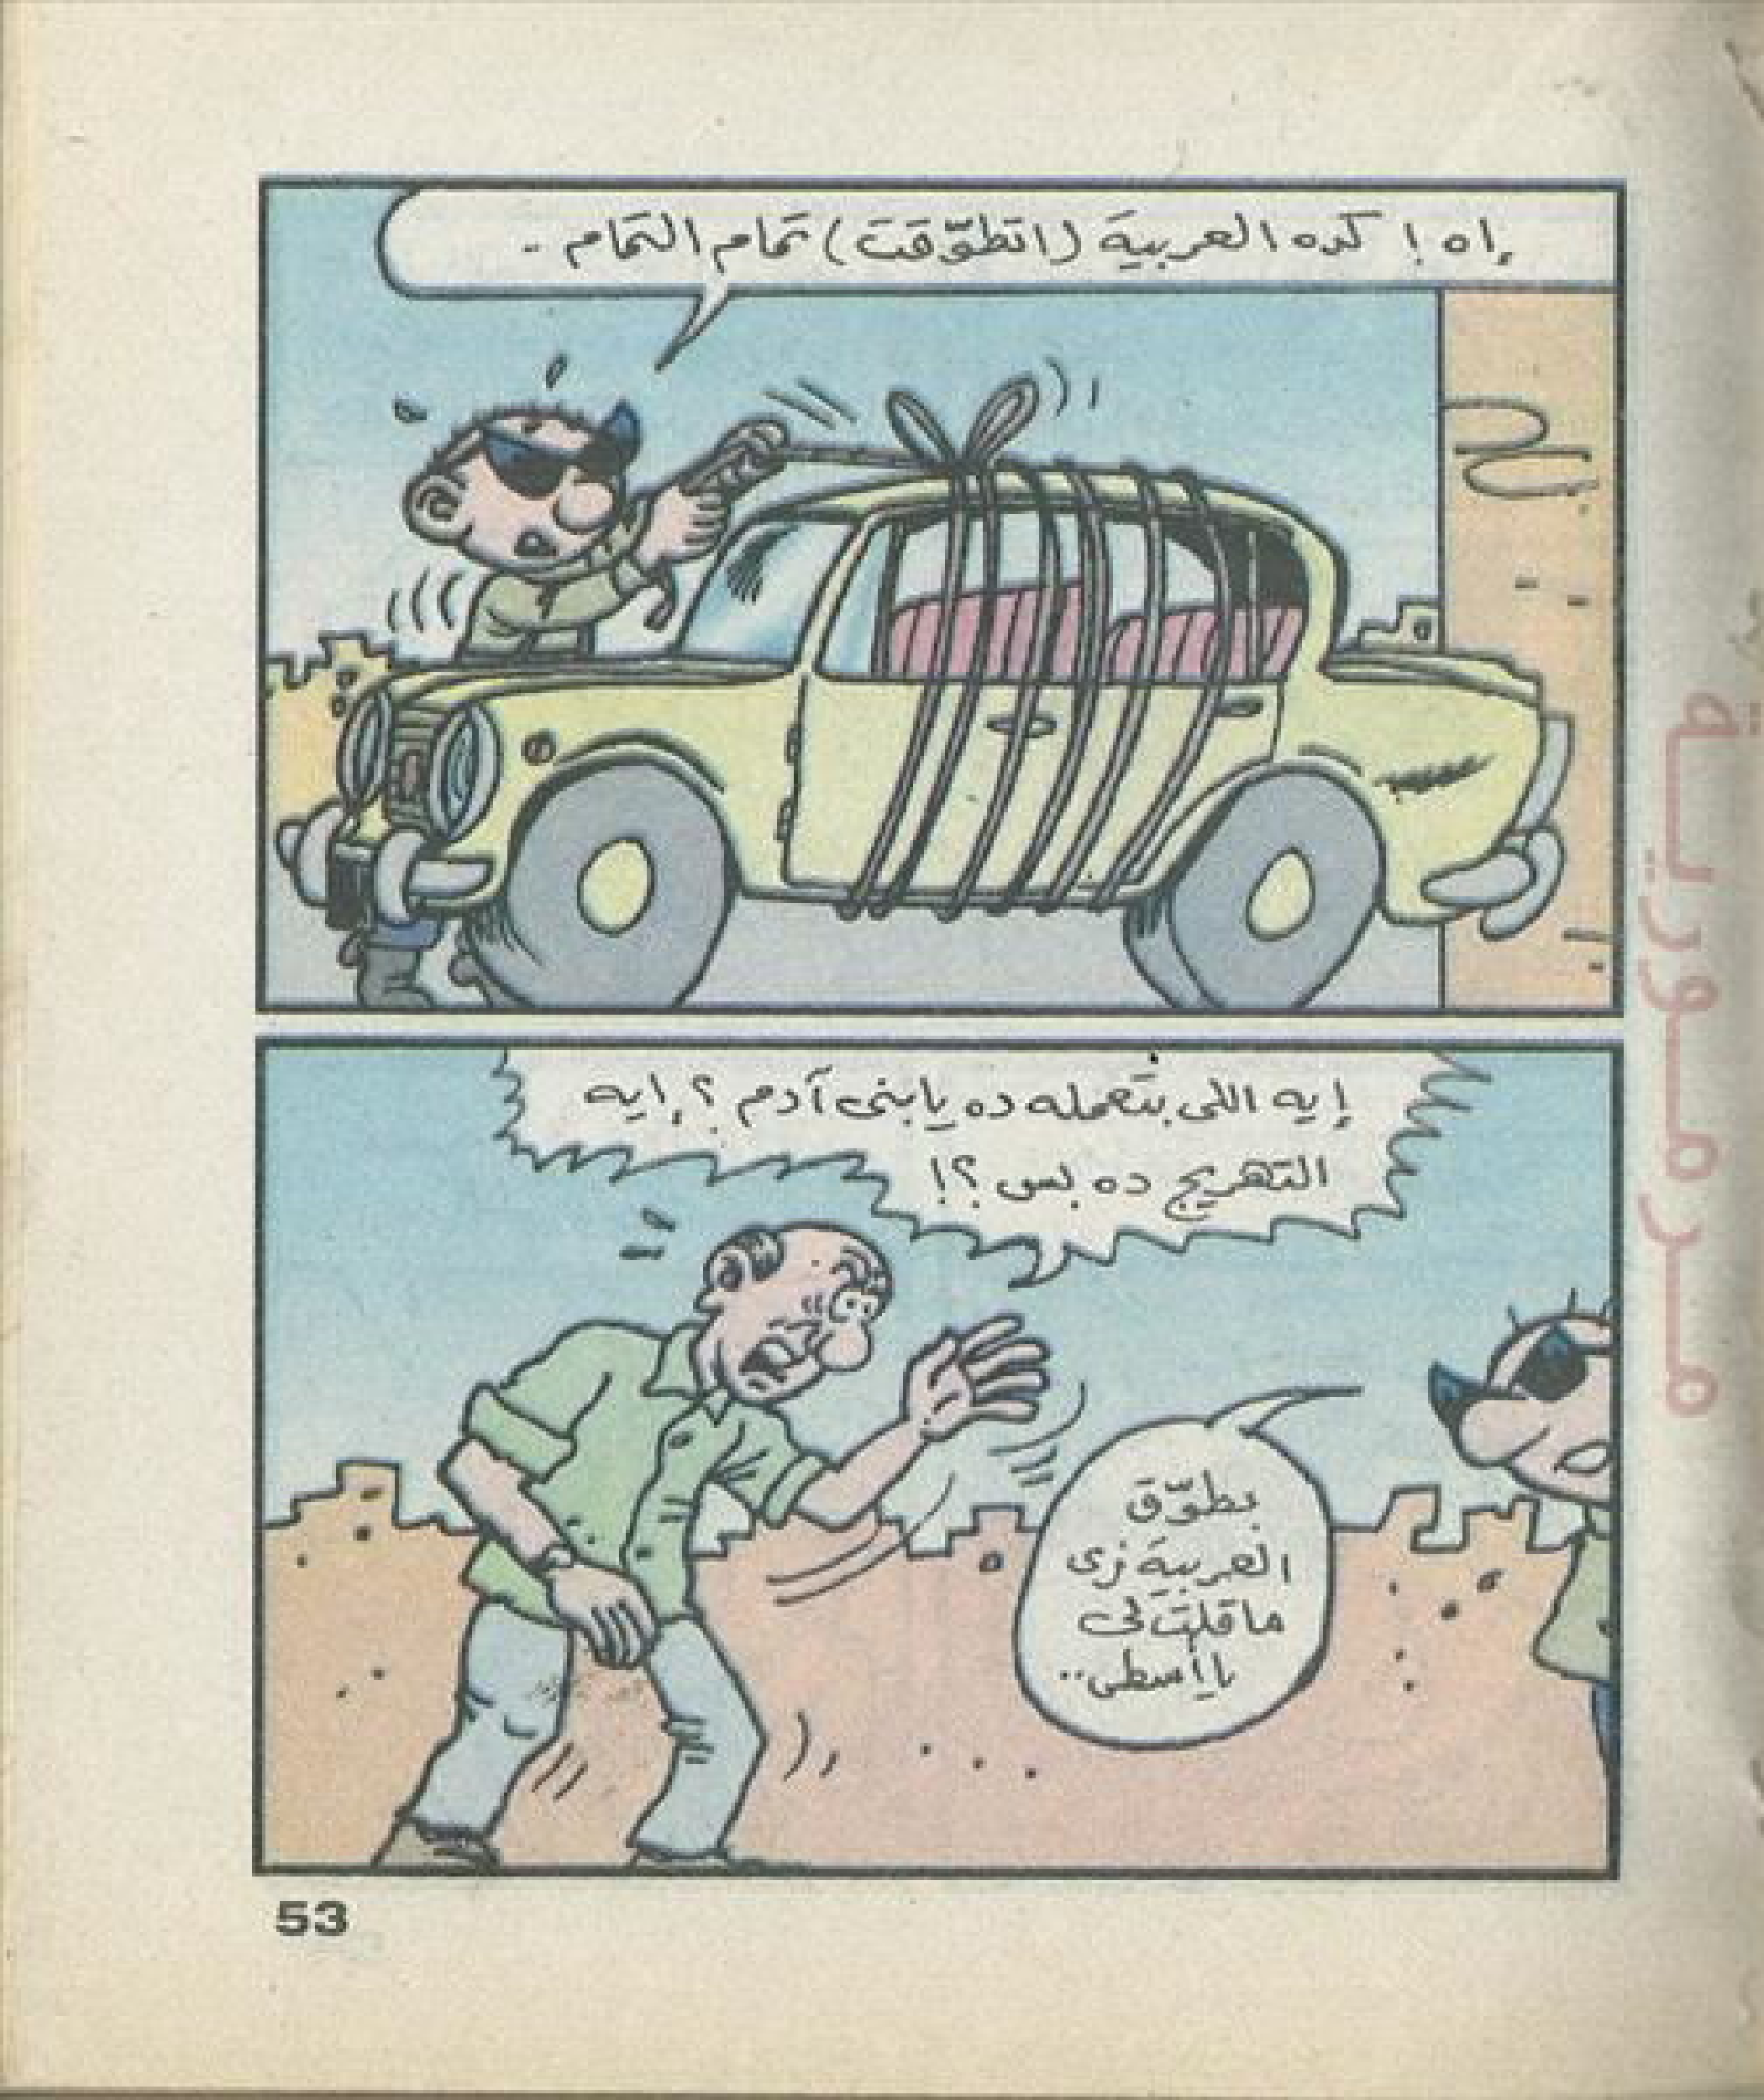 إه! كده العربية (اتطوّقت) تمام التمام -
إيه اللى بتعمله ده يابنى آدم؟ إيه
التهريج ده بس؟!
بطوّق
العربية زى
ما قلت لى
يا أسطى..
53